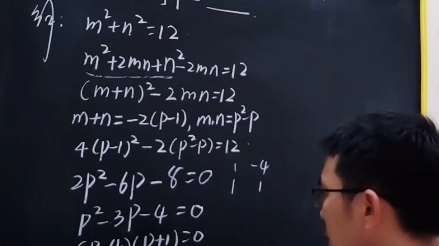 解: m²+n²=12
m²+2mn+n²-2mn=12
(m+n)²-2mn=12
m+n=-2(p-1), m.n=p²-p
4(p-1)²-2(p²-p)=12
2p²-6p-8=0
1 -4
1 1
p²-3p-4=0
(p+1)=0